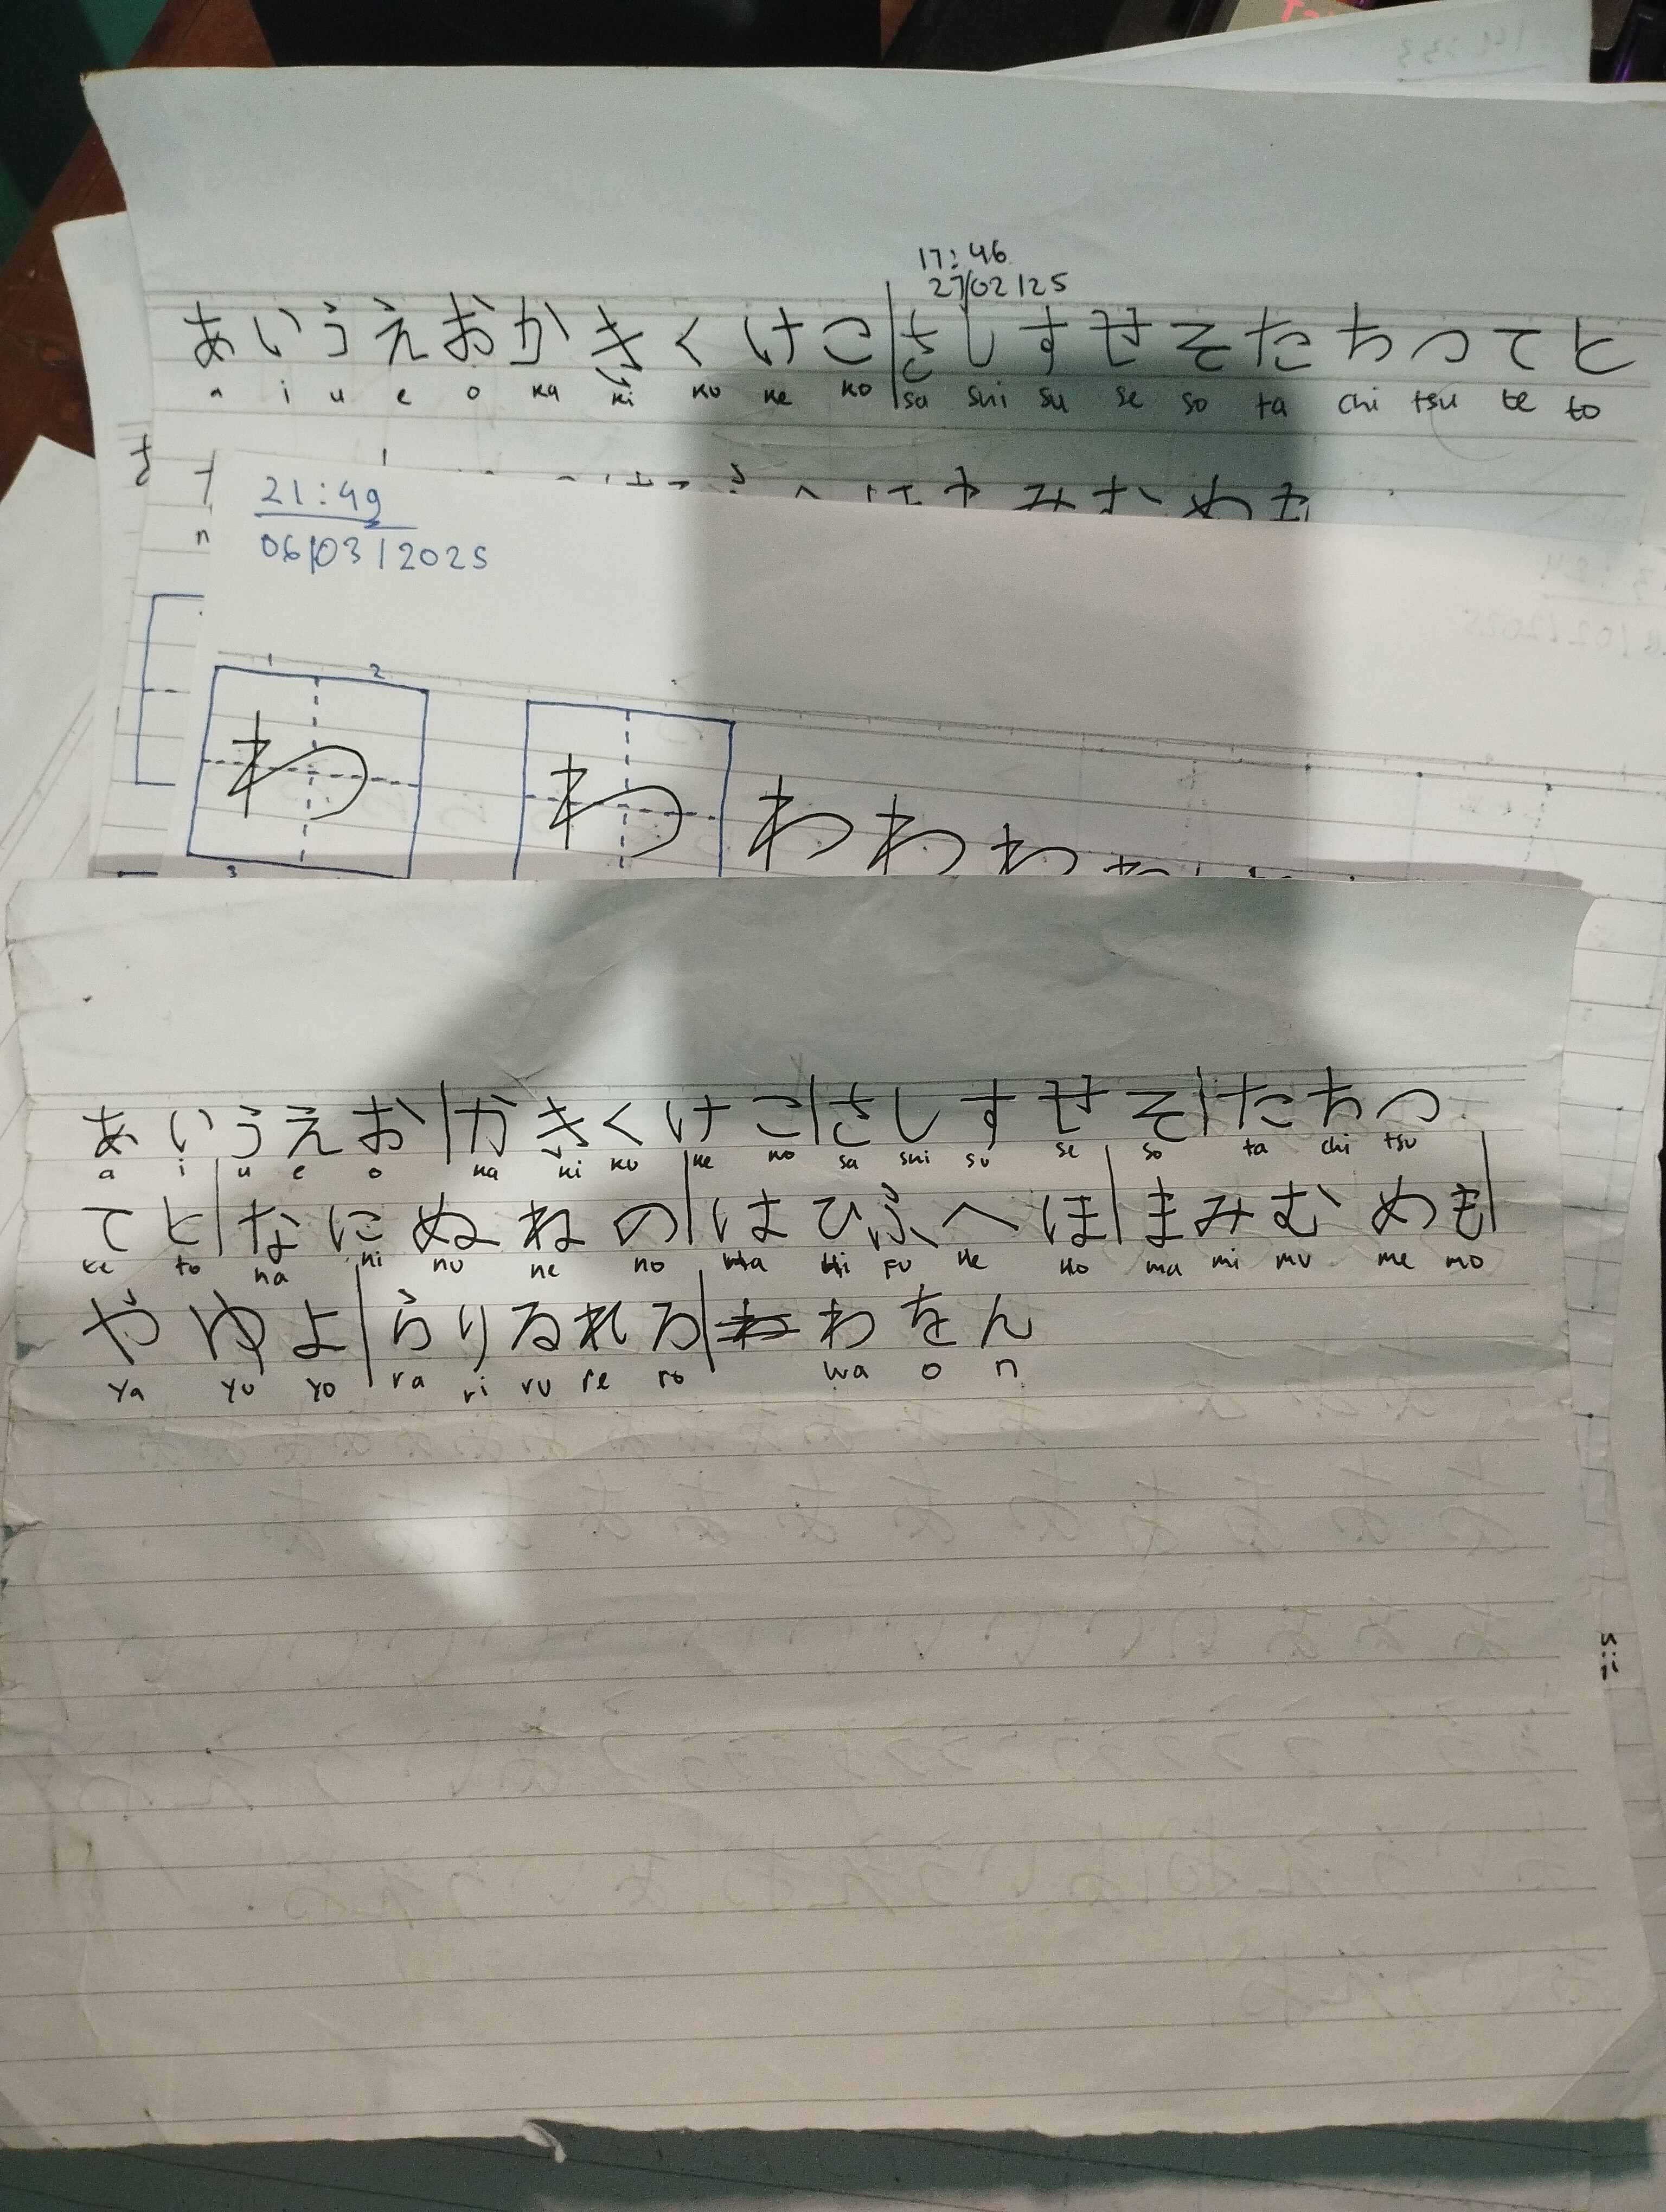 17:46
27/02/25
あいうえおかきくけこ|さしすせそたちつてと
a i u e o ka ki ku ke ko sa shi su se so ta chi tsu te to
21:49
06/03/2025
1 2
わ わ わ わ わ
3
あいうえお|かきくけこ|さしすせそ|たちつ
a i u e o ka ki ku ke ko sa shi su se so ta chi tsu
てと|なにぬねの|はひふへほ|まみむめも|
te to na ni nu ne no Ha Hi Fu He Ho ma mi mu me mo
やゆよ|らりるれろ|わをん
ya yu yo ra ri ru re ro wa o n